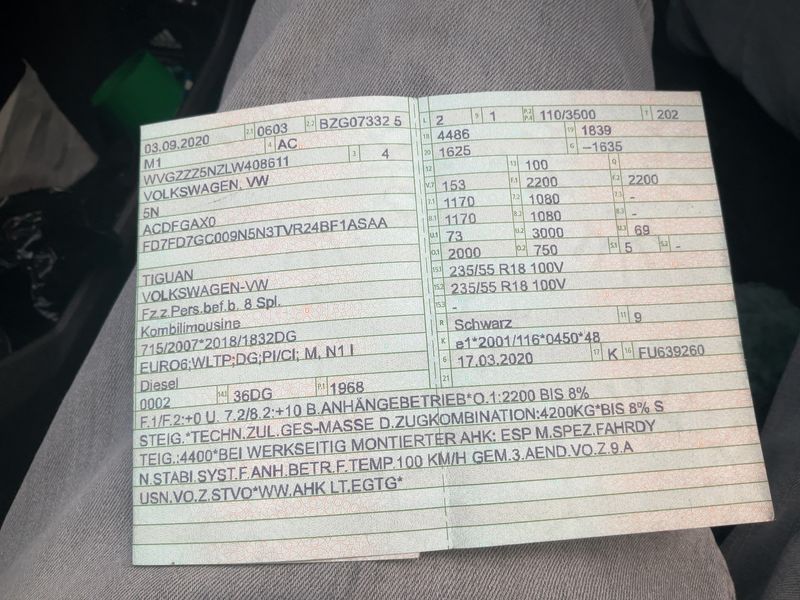 03.09.2020 2.1 0603 2.2 BZG07332 5
M1 4 AC
WVGZZZ5NZLW408611 3 4
VOLKSWAGEN, VW
5N
ACDFGAX0
FD7FD7GC009N5N3TVR24BF1ASAA
TIGUAN
VOLKSWAGEN-VW
Fz.z.Pers.bef.b. 8 Spl.
Kombilimousine
715/2007*2018/1832DG
EURO6;WLTP;DG;PI/CI; M, N1 I
Diesel
0002 14.1 36DG P.1 1968
L 2 9 1 P.2 P.4 110/3500 T 202
18 4486 19 1839
20 1625 G –1635
12 13 100 Q
V.7 153 F.1 2200 F.2 2200
7.1 1170 7.2 1080 7.3 -
8.1 1170 8.2 1080 8.3 -
U.1 73 U.2 3000 U.3 69
O.1 2000 O.2 750 S.1 5 S.2 -
15.1 235/55 R18 100V
15.2 235/55 R18 100V
15.3 -
R Schwarz 11 9
K e1*2001/116*0450*48
6 17.03.2020 17 K 16 FU639260
21
F.1/F.2:+0 U. 7.2/8.2:+10 B.ANHÄNGEBETRIEB*O.1:2200 BIS 8%
STEIG.*TECHN.ZUL.GES-MASSE D.ZUGKOMBINATION:4200KG*BIS 8% S
TEIG.:4400*BEI WERKSEITIG MONTIERTER AHK: ESP M.SPEZ.FAHRDY
N.STABI.SYST.F.ANH.BETR.F.TEMP.100 KM/H GEM.3.AEND.VO.Z.9.A
USN.VO.Z.STVO*WW.AHK LT.EGTG*